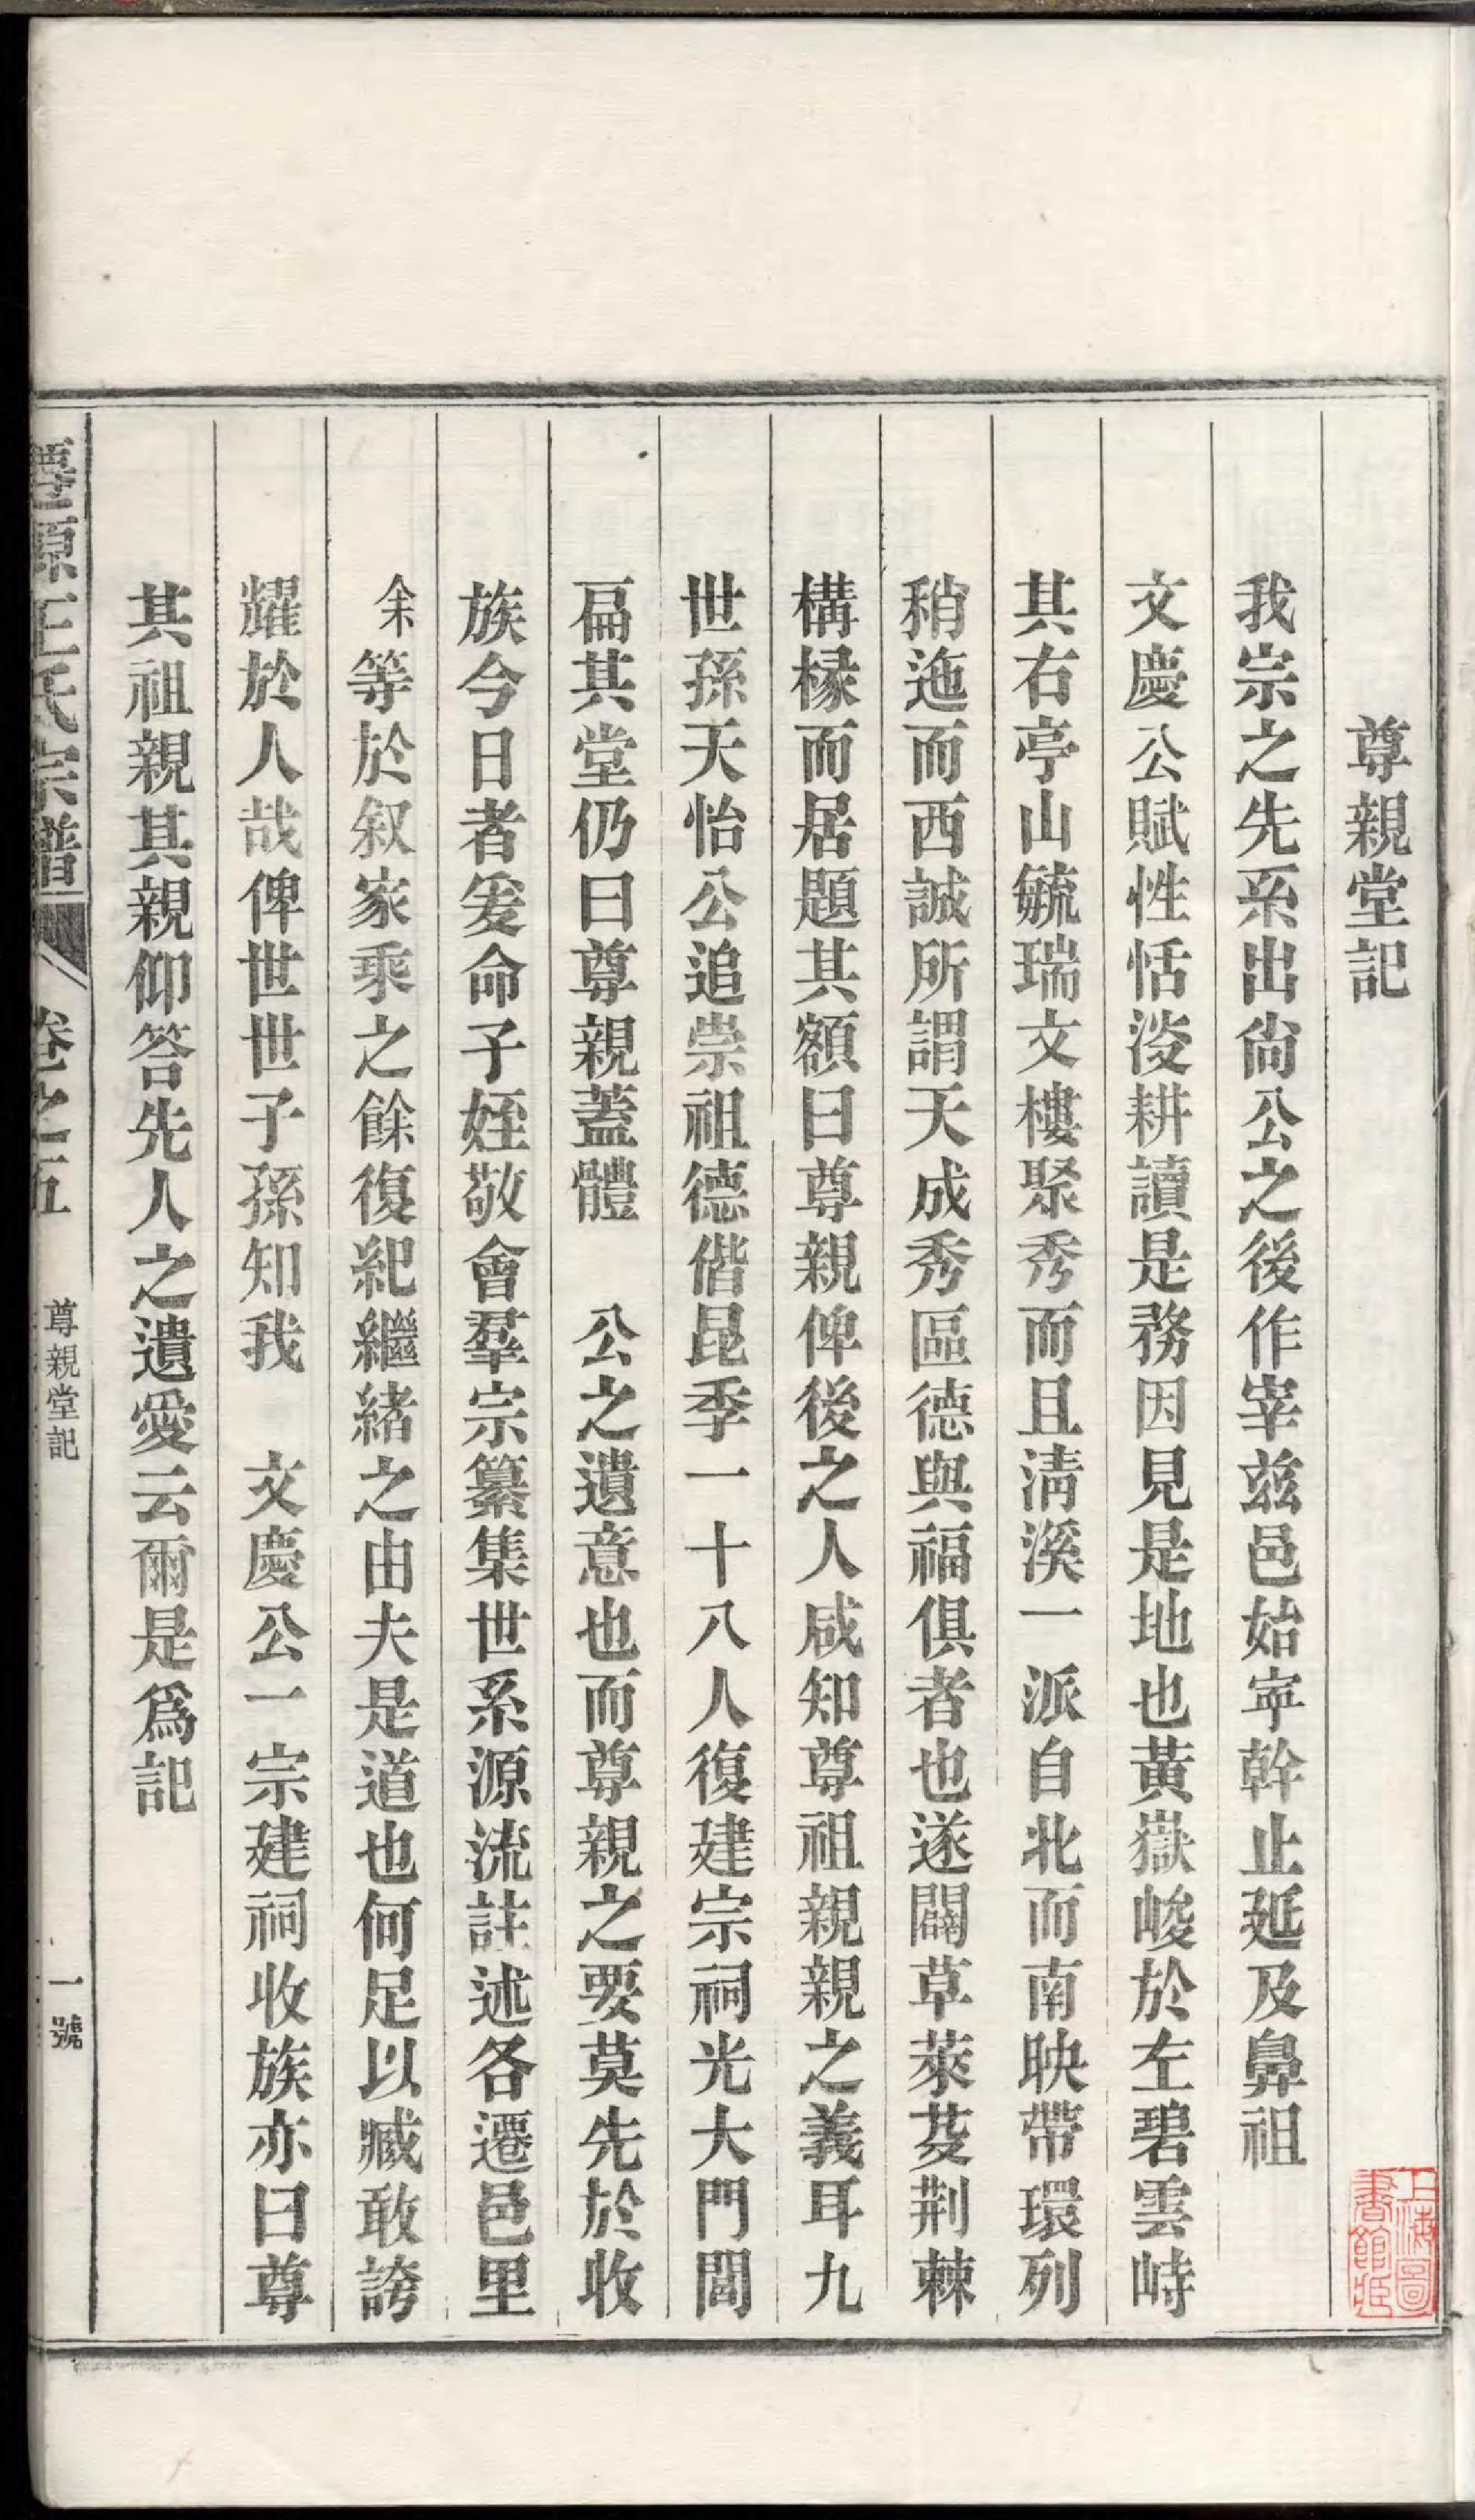 尊親堂記
我宗之先系出尙公之後作宰兹邑始寧幹止延及鼻祖
文慶公賦性恬淡耕讀是務因見是地也黃嶽峻於左碧雲峙
其右亭山毓瑞文樓聚秀而且淸溪一派自北而南映帶環列
稍迤而西誠所謂天成秀區德與福俱者也遂闢草萊芟荆棘
構椽而居題其額曰尊親俾後之人咸知尊祖親親之義耳九
世孫天怡公追崇祖德偕昆季一十八人復建宗祠光大門閭
扁其堂仍曰尊親蓋體　公之遺意也而尊親之要莫先於收
族今日者爰命子姪敬會羣宗纂集世系源流註述各遷邑里
余等於叙家乘之餘復紀繼緒之由夫是道也何足以臧敢誇
耀於人哉俾世世子孫知我　文慶公一宗建祠收族亦曰尊
其祖親其親仰答先人之遺愛云爾是爲記
王氏宗譜　卷之五　尊親堂記　一號
上海圖書館藏